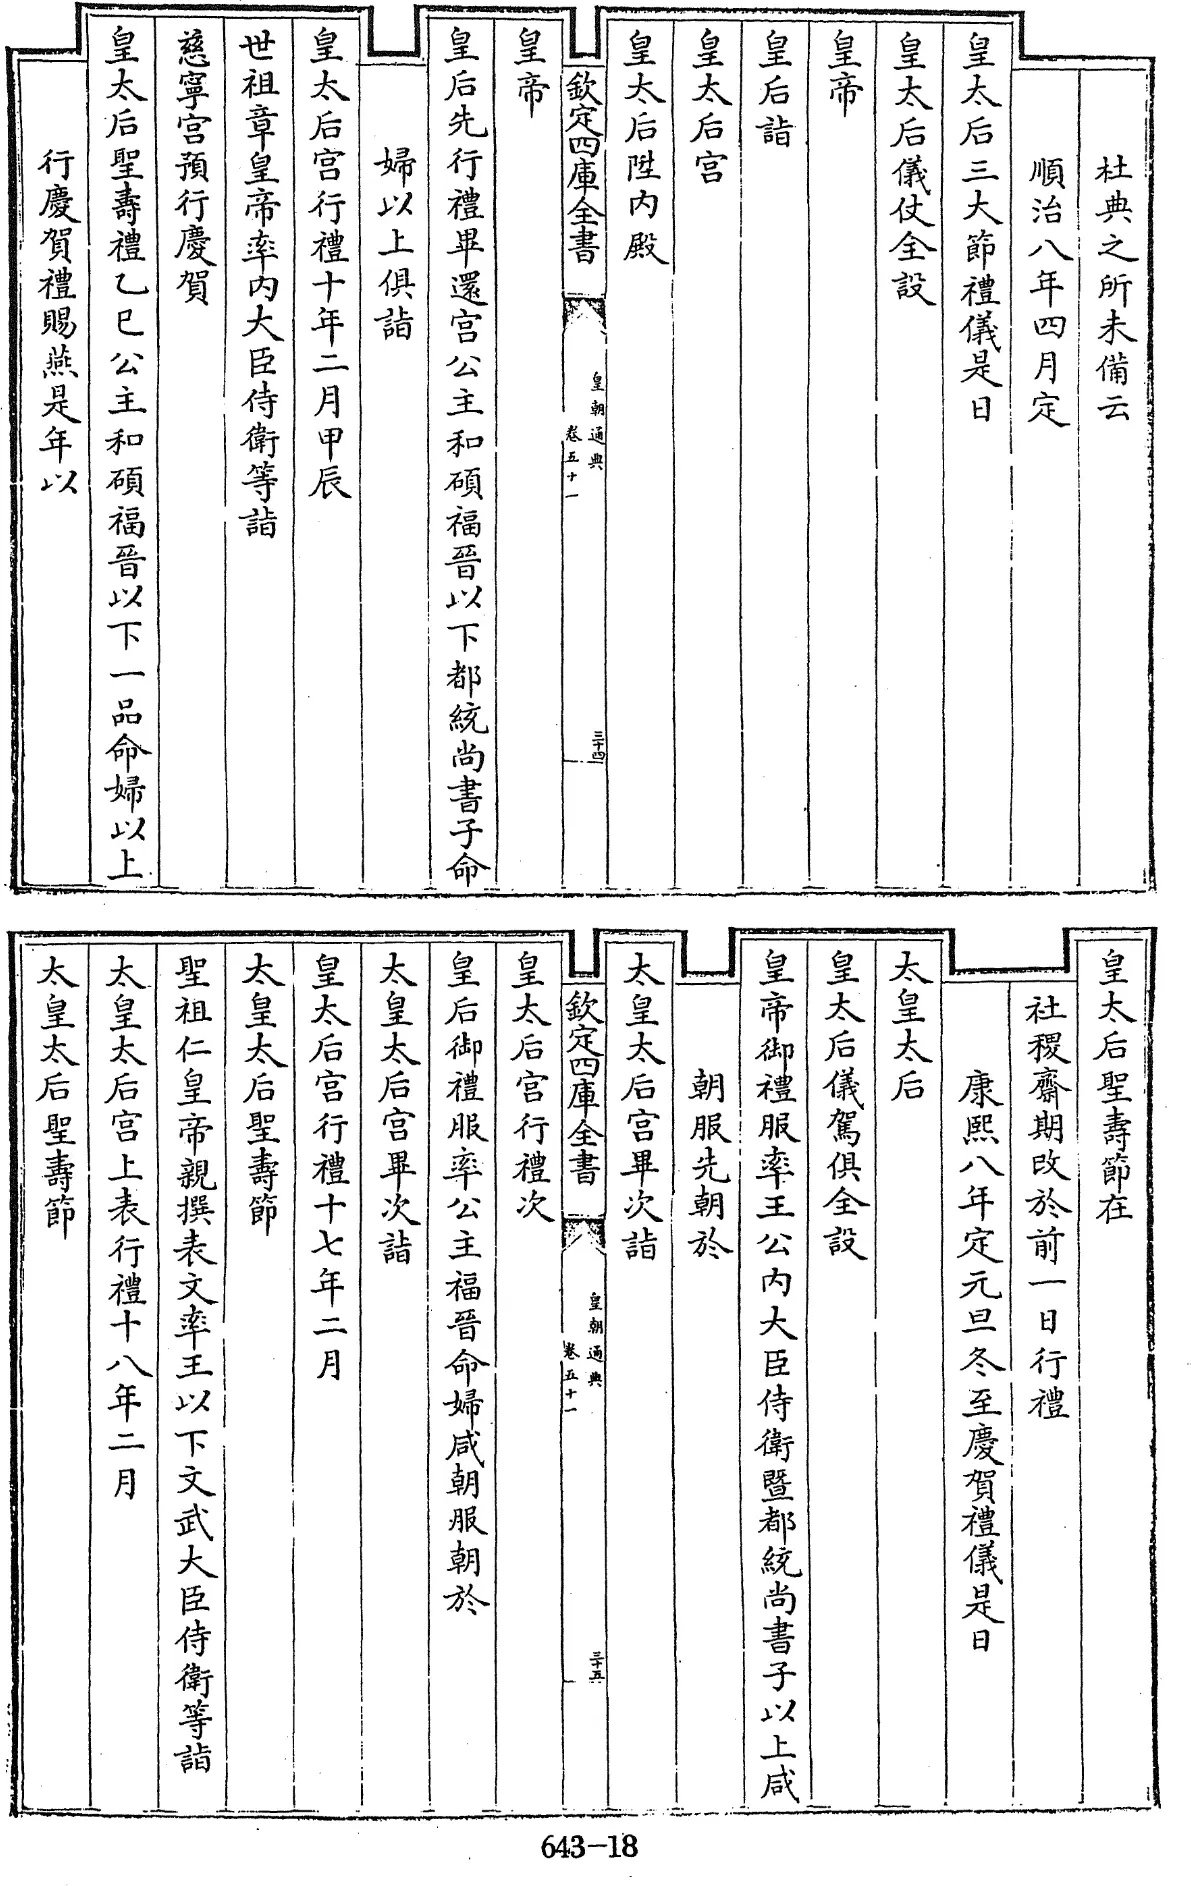 杜典之所未備云
順治八年四月定
皇太后三大節禮儀是日
皇太后儀仗全設
皇帝
皇后詣
皇太后宫
皇太后陞内殿
欽定四庫全書
皇朝通典
卷五十一
三十四
皇帝
皇后先行禮畢還宫公主和碩福晉以下都統尚書子命
婦以上俱詣
皇太后宫行禮十年二月甲辰
世祖章皇帝率内大臣侍衛等詣
慈寧宫預行慶賀
皇太后聖壽禮乙巳公主和碩福晉以下一品命婦以上
行慶賀禮賜燕是年以
皇太后聖壽節在
社稷齋期改於前一日行禮
康熙八年定元旦冬至慶賀禮儀是日
太皇太后
皇太后儀駕俱全設
皇帝御禮服率王公内大臣侍衛暨都統尚書子以上咸
朝服先朝於
太皇太后宫畢次詣
欽定四庫全書
皇朝通典
卷五十一
三十五
皇太后宫行禮次
皇后御禮服率公主福晉命婦咸朝服朝於
太皇太后宫畢次詣
皇太后宫行禮十七年二月
太皇太后聖壽節
聖祖仁皇帝親撰表文率王以下文武大臣侍衛等詣
太皇太后宫上表行禮十八年二月
太皇太后聖壽節
643-18